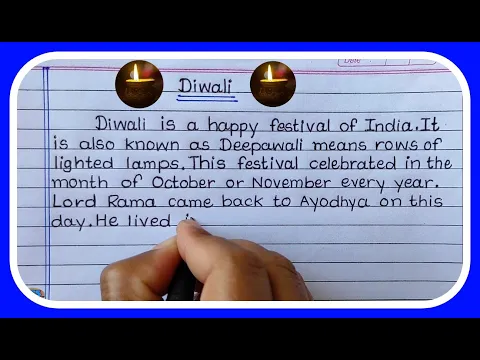 Date
Diwali
Diwali is a happy festival of India.It
is also known as Deepawali means rows of
lighted lamps.This festival celebrated in the
month of October or November every year.
Lord Rama came back to Ayodhya on this
day.He lived i